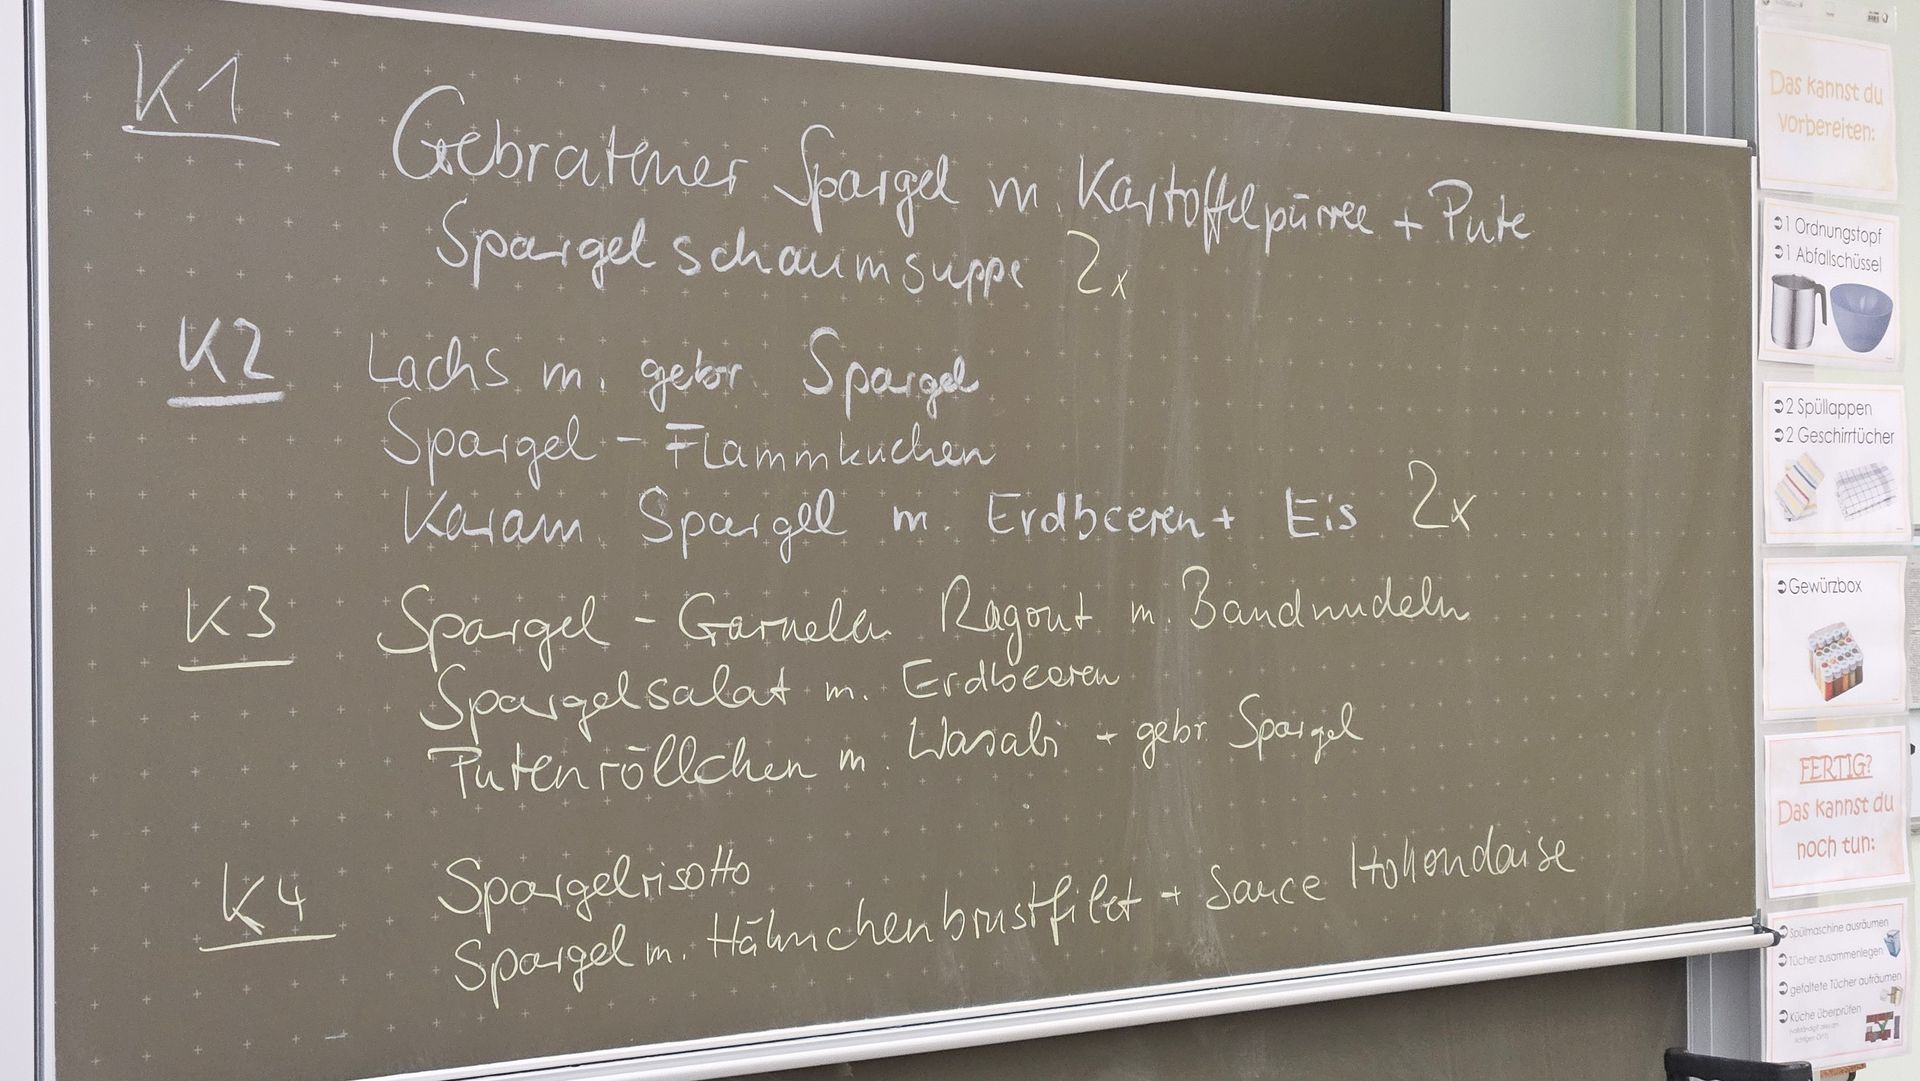 K1
Gebratener Spargel m. Kartoffelpürree + Pute
Spargelschaumsuppe 2x
K2
Lachs m. gebr. Spargel
Spargel - Flammkuchen
Karam. Spargel m. Erdbeeren + Eis 2x
K3
Spargel - Garnelen Ragout m. Bandnudeln
Spargelsalat m. Erdbeeren
Putenröllchen m. Wasabi + gebr. Spargel
K4
Spargelrisotto
Spargel m. Hähnchenbrustfilet + Sauce Hollondaise
Das kannst du
vorbereiten:
➲1 Ordnungstopf
➲1 Abfallschüssel
➲2 Spüllappen
➲2 Geschirrtücher
➲Gewürzbox
FERTIG?
Das kannst du
noch tun:
➲Spülmaschine ausräumen
➲Tücher zusammenlegen
➲gefaltete Tücher aufräumen
➲Küche überprüfen